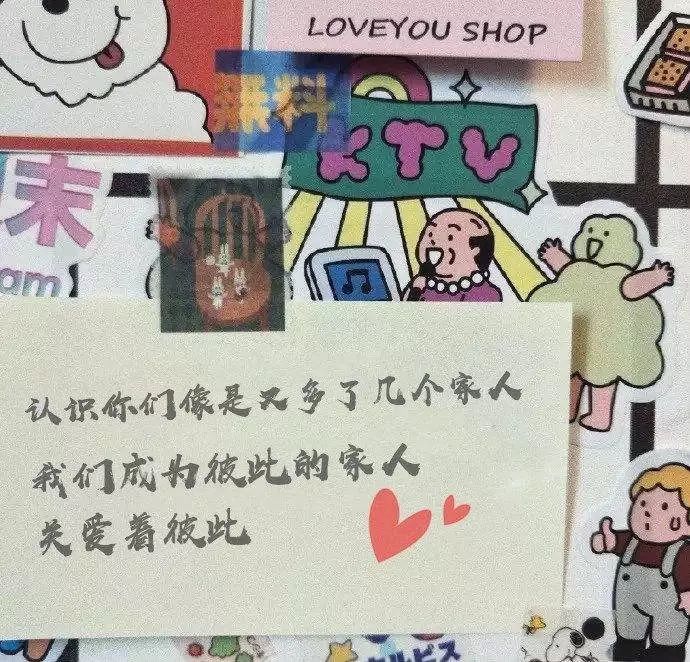 LOVEYOU SHOP
無料
KTV
末
am
认识你们像是又多了几个家人
我们成为彼此的家人
关爱着彼此
カルピス